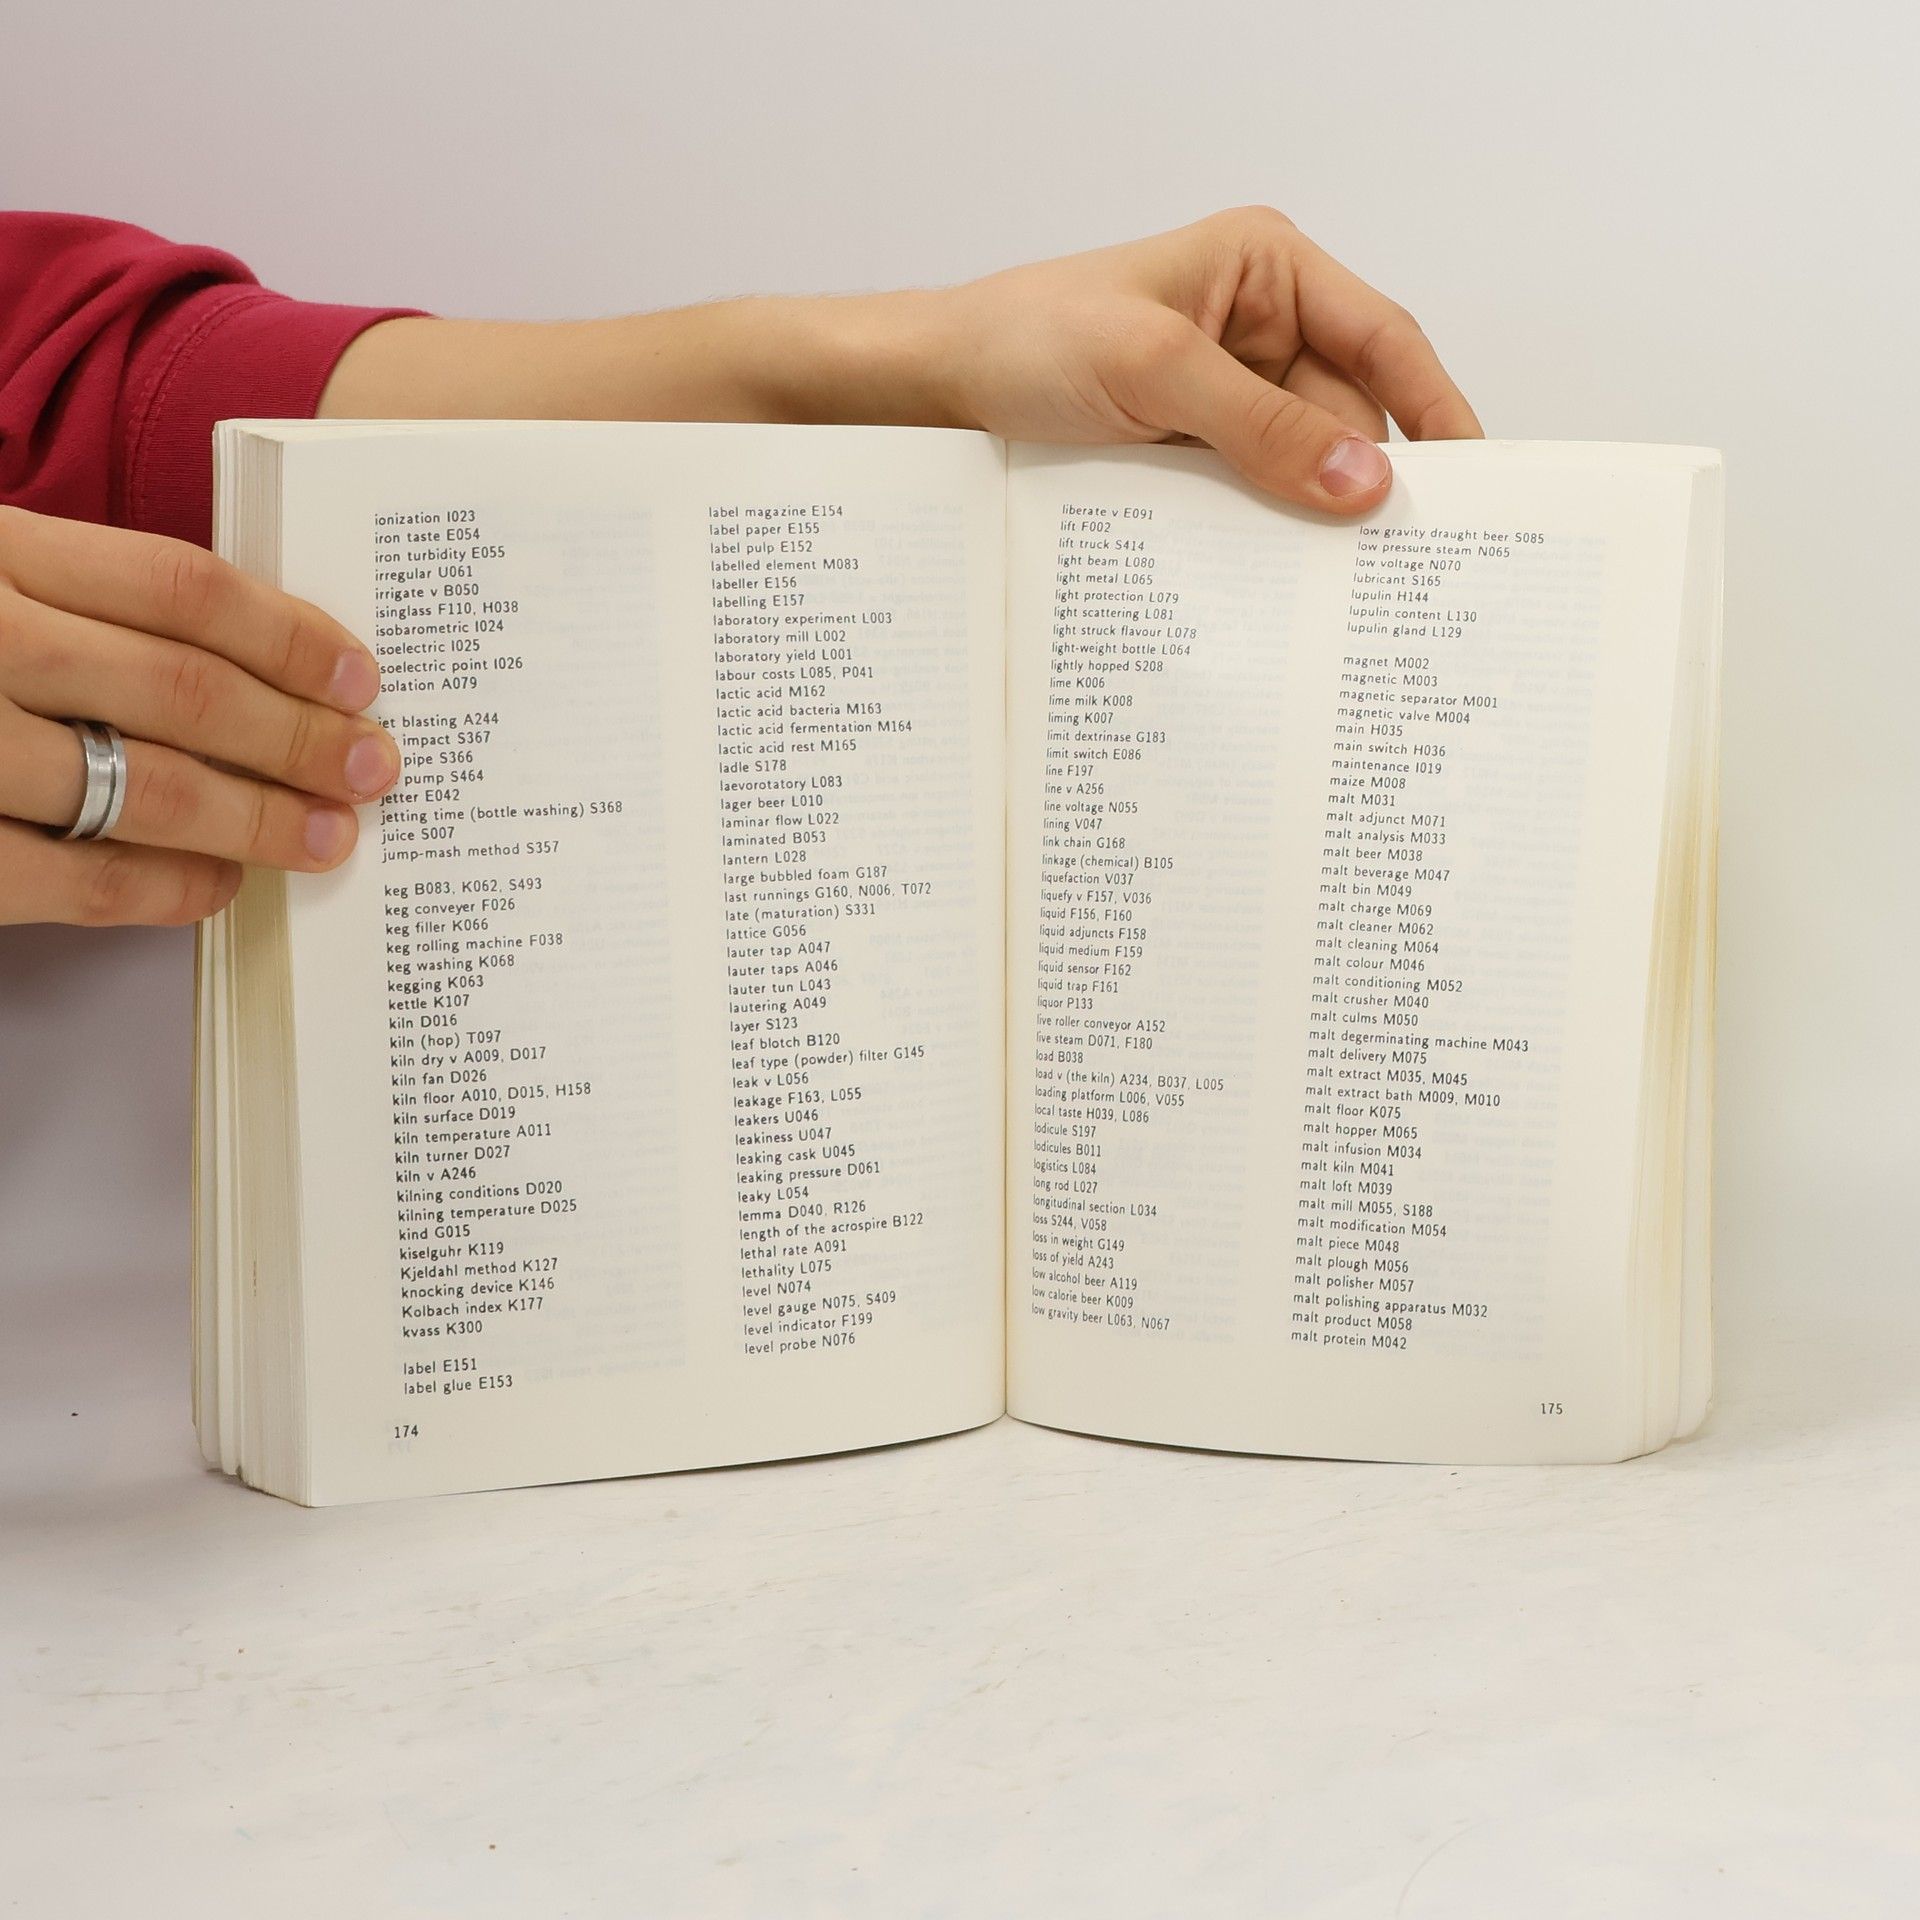 ionization I023
iron taste E054
iron turbidity E055
irregular U061
irrigate v B050
isinglass F110, H038
isobarometric I024
isoelectric I025
soelectric point I026
solation A079
jet blasting A244
impact S367
pipe S366
pump S464
jetter E042
jetting time (bottle washing) S368
juice S007
jump-mash method S357
keg B083, K062, S493
keg conveyer F026
keg filler K066
keg rolling machine F038
keg washing K068
kegging K063
kettle K107
kiln D016
kiln (hop) T097
kiln dry v A009, D017
kiln fan D026
kiln floor A010, D015, H158
kiln surface D019
kiln temperature A011
kiln turner D027
kiln v A246
kilning conditions D020
kilning temperature D025
kind G015
kiselguhr K119
Kjeldahl method K127
knocking device K146
Kolbach index K177
kvass K300
label E151
label glue E153
174
label magazine E154
label paper E155
label pulp E152
labelled element M083
labeller E156
labelling E157
laboratory experiment L003
laboratory mill L002
laboratory yield L001
labour costs L085, P041
lactic acid M162
lactic acid bacteria M163
lactic acid fermentation M164
lactic acid rest M165
ladle S178
laevorotatory L083
lager beer L010
laminar flow L022
laminated B053
lantern L028
large bubbled foam G187
last runnings G160, N006, T072
late (maturation) S331
lattice G056
lauter tap A047
lauter taps A046
lauter tun L043
lautering A049
layer S123
leaf blotch B120
leaf type (powder) filter G145
leak v L056
leakage F163, L055
leakers U046
leakiness U047
leaking cask U045
leaking pressure D061
leaky L054
lemma D040, R126
length of the acrospire B122
lethal rate A091
lethality L075
level N074
level gauge N075, S409
level indicator F199
level probe N076
liberate v E091
lift F002
lift truck S414
light beam L080
light metal L065
light protection L079
light scattering L081
light struck flavour L078
light-weight bottle L064
lightly hopped S208
lime K006
lime milk K008
liming K007
limit dextrinase G183
limit switch E086
line F197
line v A256
line voltage N055
lining V047
link chain G168
linkage (chemical) B105
liquefaction V037
liquefy v F157, V036
liquid F156, F160
liquid adjuncts F158
liquid medium F159
liquid sensor F162
liquid trap F161
liquor P133
live roller conveyor A152
live steam D071, F180
load B038
load v (the kiln) A234, B037, L005
loading platform L006, V055
local taste H039, L086
lodicule S197
lodicules B011
logistics L084
long rod L027
longitudinal section L034
loss S244, V058
loss in weight G149
loss of yield A243
low alcohol beer A119
low calorie beer K009
low gravity beer L063, N067
low gravity draught beer S085
low pressure steam N065
low voltage N070
lubricant S165
lupulin H144
lupulin content L130
lupulin gland L129
magnet M002
magnetic M003
magnetic separator M001
magnetic valve M004
main H035
main switch H036
maintenance I019
maize M008
malt M031
malt adjunct M071
malt analysis M033
malt beer M038
malt beverage M047
malt bin M049
malt charge M069
malt cleaner M062
malt cleaning M064
malt colour M046
malt conditioning M052
malt crusher M040
malt culms M050
malt degerminating machine M043
malt delivery M075
malt extract M035, M045
malt extract bath M009, M010
malt floor K075
malt hopper M065
malt infusion M034
malt kiln M041
malt loft M039
malt mill M055, S188
malt modification M054
malt piece M048
malt plough M056
malt polisher M057
malt polishing apparatus M032
malt product M058
malt protein M042
175